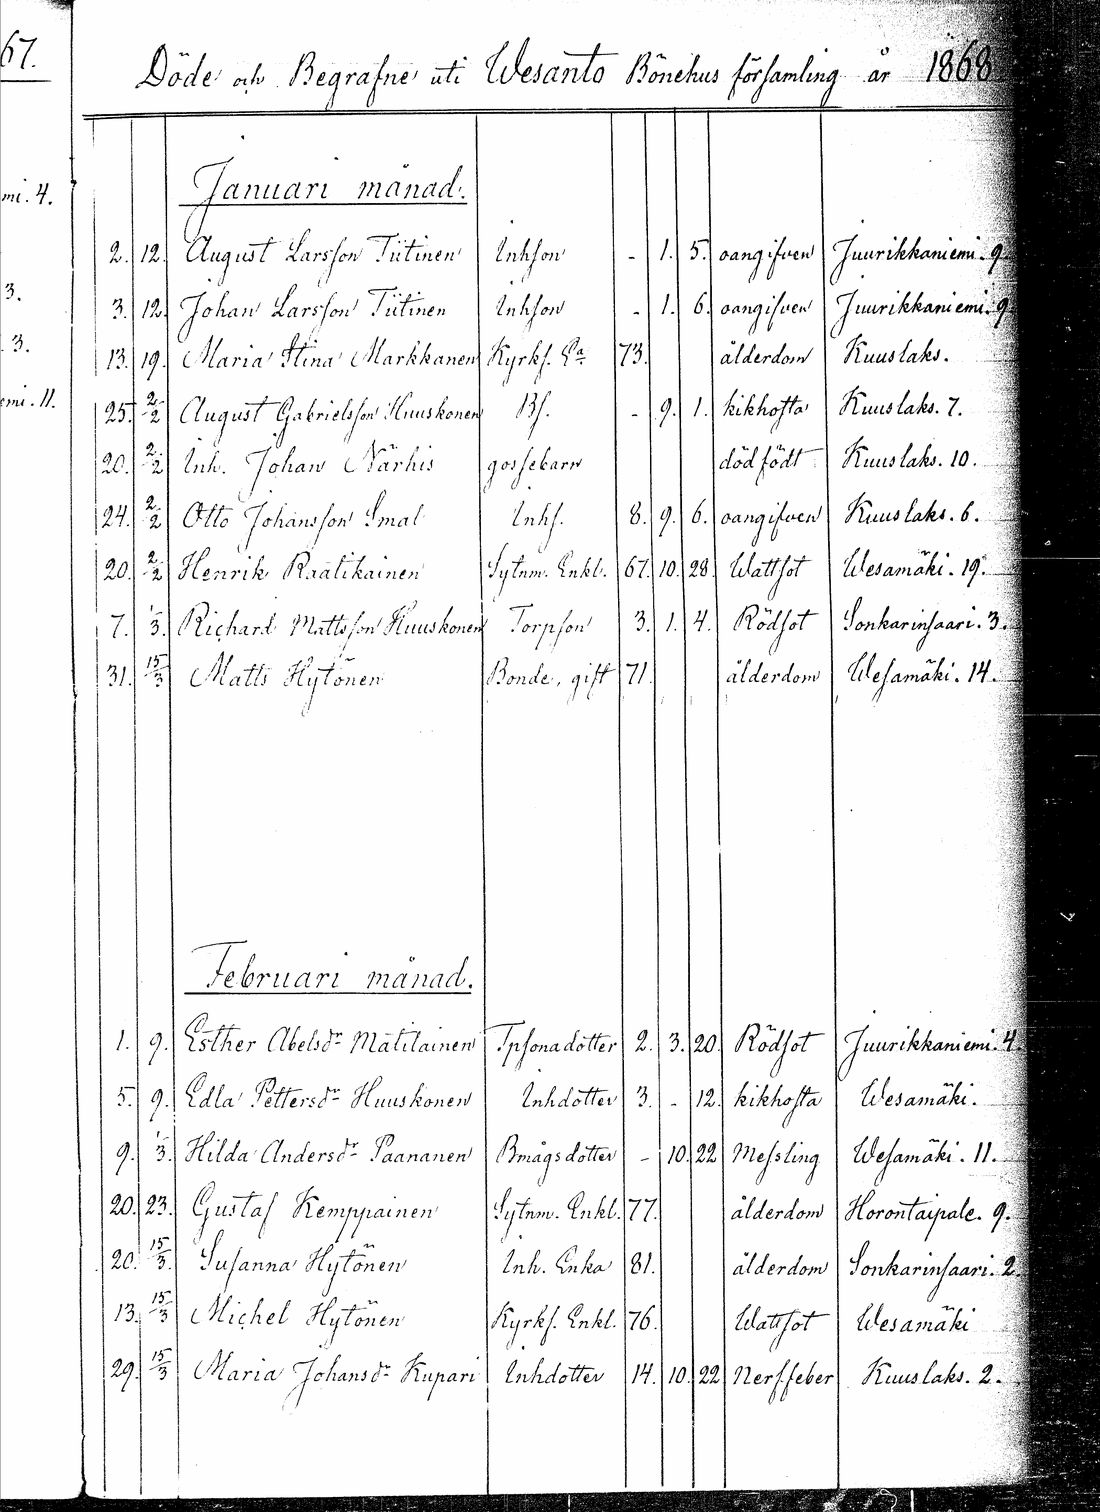 67.
mi. 4.
3.
3.
emi. 11.
Döde och Begrafne uti Wesanto Bönehus församling år 1868
Januari månad.
2. 12. August Larsson Tiitinen Inhson - 1. 5. oangifven Juurikkaniemi. 9
3. 12. Johan Larsson Tiitinen Inhson - 1. 6. oangifven Juurikkaniemi. 9
13. 19. Maria Stina Markkanen Kyrkf. Ea 73. ålderdom Kuuslaks.
25. 2/2 August Gabrielsson Huuskonen Bs. - 9. 1. kikhosta Kuuslaks. 7.
20. 2/2 Inh. Johan Närhis gossebarn dödfödt Kuuslaks. 10.
24. 2/2 Otto Johansson Smal Inhs. 8. 9. 6. oangifven Kuuslaks. 6.
20. 2/2 Henrik Raatikainen Sytnm. Enkl. 67. 10. 28. Wattsot Wesamäki. 19.
7. 1/3. Richard Mattsson Huuskonen Torpson 3. 1. 4. Rödsot Sonkarinsaari. 3.
31. 15/3 Matts Hytönen Bonde, gift 71. ålderdom Wesamäki. 14.
Februari månad.
1. 9. Esther Abelsdr Matilainen Tpsonadotter 2. 3. 20. Rödsot Juurikkaniemi. 4.
5. 9. Edla Pettersdr Huuskonen Inhdotter 3. - 12. kikhosta Wesamäki.
9. 1/3. Hilda Andersdr Paananen Bmågsdotter - 10. 22 Messling Wesamäki. 11.
20. 23. Gustaf Kemppainen Sytnm. Enkl. 77. ålderdom Horontaipale. 9.
20. 15/3. Susanna Hytönen Inh. Enka 81. ålderdom Sonkarinsaari. 2.
13. 15/3 Michel Hytönen Kyrkf. Enkl. 76. Wattsot Wesamäki
29. 15/3 Maria Johansdr Kupari Inhdotter 14. 10. 22 Nerffeber Kuuslaks. 2.